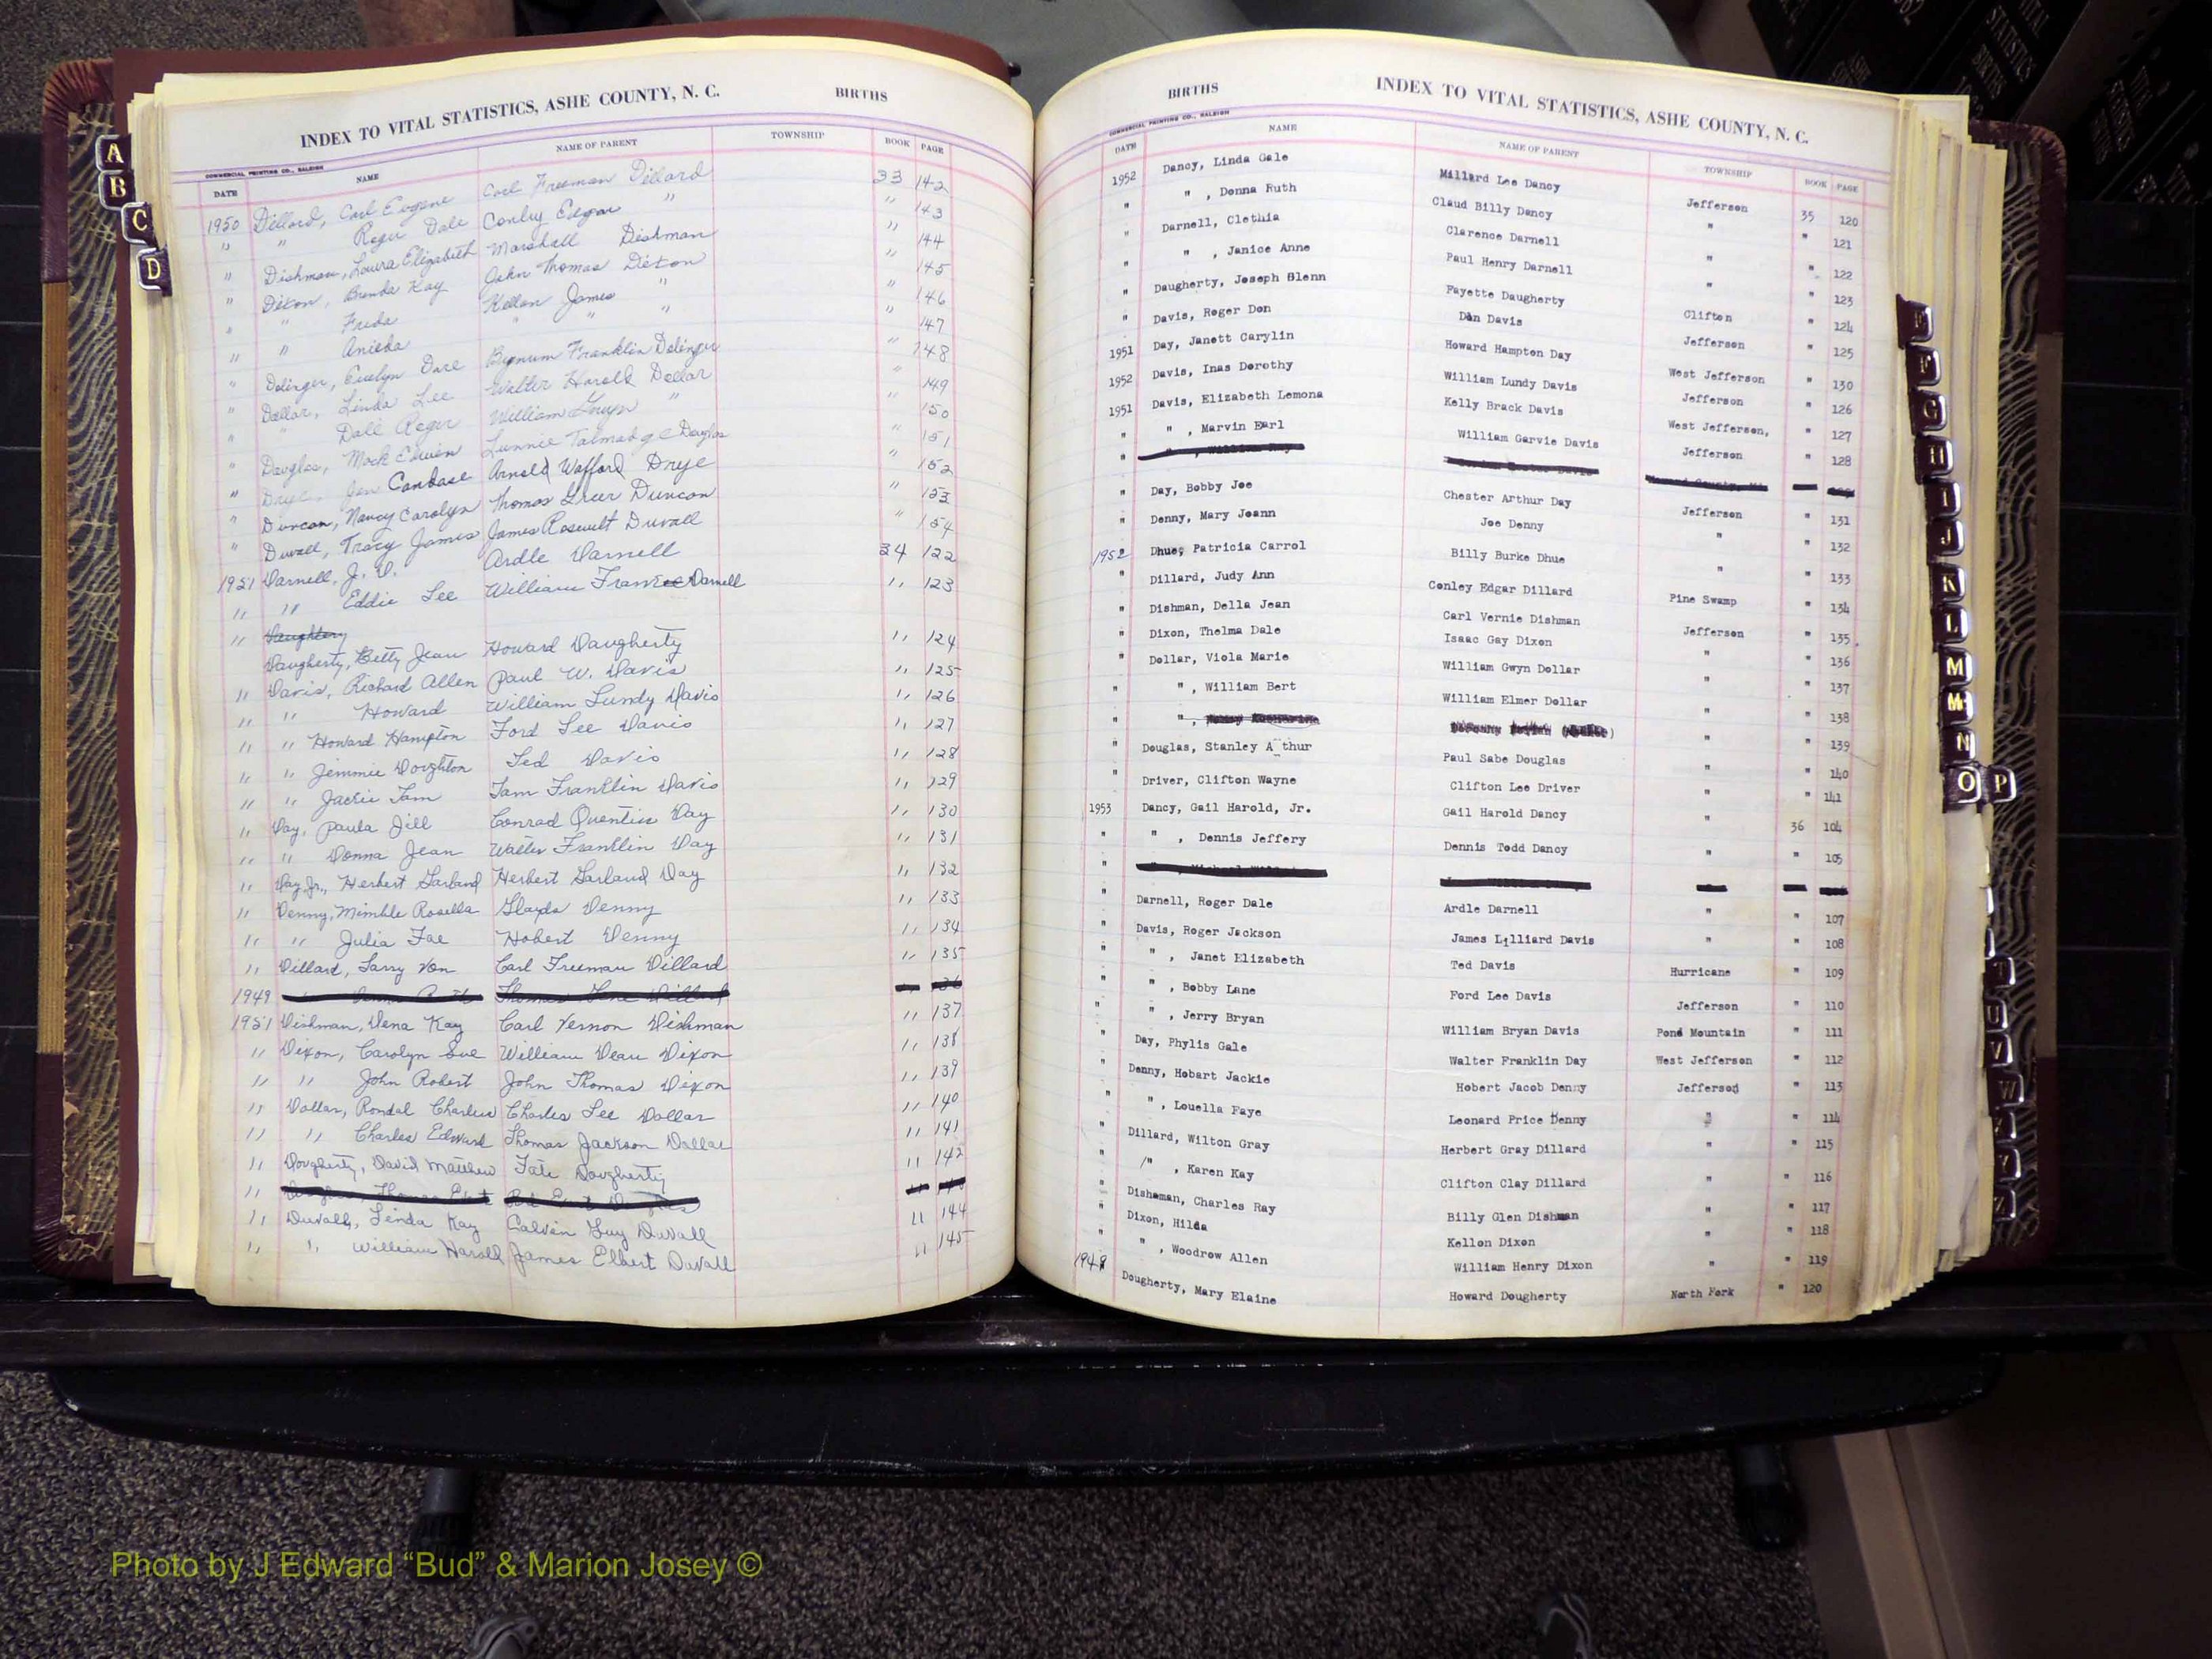 INDEX TO VITAL STATISTICS, ASHE COUNTY, N. C. BIRTHS
COMMERCIAL PRINTING CO., RALEIGH
DATE NAME NAME OF PARENT TOWNSHIP BOOK PAGE
1950 Dillard, Carl Eugene Carl Freeman Dillard 33 142
" " Roger Dale Conley Edgar " " 143
" Dishman, Louira Elizabeth Marshall Dishman " 144
" Dixon, Brenda Kay John Thomas Dixon " 145
" " Freda Kellon James " " 146
" " Anieda " " " " 147
" Dolinger, Evelyn Dare Bynum Franklin Dolinger " 148
" Dollar, Linda Lee Walter Harold Dollar " 149
" " Dall Roger William Gwyn " " 150
" Douglas, Mock Edwin Lunnie Talmadge Douglas " 151
" Drye, Jan Candase Arnold Wafford Drye " 152
" Duncan, Nancy Carolyn Thomas Greer Duncan " 153
" Duvall, Tracy James James Rosevelt Duvall " 154
1951 Darnell, J. D. Ardle Darnell 34 122
" " Eddie Lee William France Darnell " 123
" Daughtery
Daugherty, Betty Jean Howard Daugherty " 124
" Davis, Richard Allen Paul W. Davis " 125
" " Howard William Lundy Davis " 126
" " Howard Hampton Ford Lee Davis " 127
" " Jimmie Doughton Ted Davis " 128
" " Jackie Tam Tam Franklin Davis " 129
" Day, Paula Jill Conrad Quentin Day " 130
" " Donna Jean Walter Franklin Day " 131
" Day, Jr., Herbert Garland Herbert Garland Day " 132
" Denny, Mimhle Rosella Glayds Denny " 133
" " Julia Fae Hobert Denny " 134
" Dillard, Larry Von Carl Freeman Dillard " 135
1949
1951 Dishman, Dena Kay Carl Vernon Dishman " 137
" Dixon, Carolyn Sue William Dean Dixon " 138
" " John Robert John Thomas Dixon " 139
" Dollar, Rondal Charles Charles Lee Dollar " 140
" " Charles Edward Thomas Jackson Dollar " 141
" Dougherty, David Matthew Fate Dougherty " 142
"
" Duvall, Linda Kay Calvin Guy Duvall " 144
" " William Harold James Elbert Duvall " 145
BIRTHS INDEX TO VITAL STATISTICS, ASHE COUNTY, N. C.
COMMERCIAL PRINTING CO., RALEIGH
DATE NAME NAME OF PARENT TOWNSHIP BOOK PAGE
1952 Dancy, Linda Gale Millard Lee Dancy Jefferson 35 120
" " , Donna Ruth Claud Billy Dancy " " 121
" Darnell, Clethia Clarence Darnell " " 122
" " , Janice Anne Paul Henry Darnell " " 123
" Daugherty, Joseph Glenn Fayette Daugherty Clifton " 124
" Davis, Roger Don Dan Davis Jefferson " 125
1951 Day, Janett Carylin Howard Hampton Day West Jefferson " 130
1952 Davis, Inas Dorothy William Lundy Davis Jefferson " 126
1951 Davis, Elizabeth Lemona Kelly Brack Davis West Jefferson, " 127
" " , Marvin Earl William Garvie Davis Jefferson " 128
"
" Day, Bobby Joe Chester Arthur Day Jefferson " 131
" Denny, Mary Joann Joe Denny " " 132
1952 Dhue, Patricia Carrol Billy Burke Dhue " " 133
" Dillard, Judy Ann Conley Edgar Dillard Pine Swamp " 134
" Dishman, Della Jean Carl Vernie Dishman Jefferson " 135
" Dixon, Thelma Dale Isaac Gay Dixon " " 136
" Dollar, Viola Marie William Gwyn Dollar " " 137
" " , William Bert William Elmer Dollar " " 138
" " , " " 139
" Douglas, Stanley A thur Paul Sabe Douglas " " 140
" Driver, Clifton Wayne Clifton Lee Driver " " 141
1953 Dancy, Gail Harold, Jr. Gail Harold Dancy " 36 104
" " , Dennis Jeffery Dennis Todd Dancy " " 105
"
" Darnell, Roger Dale Ardle Darnell " " 107
" Davis, Roger Jackson James Lilliard Davis " " 108
" " , Janet Elizabeth Ted Davis Hurricane " 109
" " , Bobby Lane Ford Lee Davis Jefferson " 110
" " , Jerry Bryan William Bryan Davis Pond Mountain " 111
" Day, Phylis Gale Walter Franklin Day West Jefferson " 112
" Denny, Hobart Jackie Hobert Jacob Denny Jefferson " 113
" " , Louella Faye Leonard Price Denny " " 114
" Dillard, Wilton Gray Herbert Gray Dillard " " 115
" " , Karen Kay Clifton Clay Dillard " " 116
" Dishman, Charles Ray Billy Glen Dishman " " 117
" Dixon, Hilda Kellon Dixon " " 118
" " , Woodrow Allen William Henry Dixon " " 119
1948 Dougherty, Mary Elaine Howard Dougherty North Fork " 120
A
B
C
D
E
F
G
H
I
J
K
L
M
M
N
O P
T
U
V
W
Y
Z
VITAL STATISTICS BIRTHS
Photo by J Edward “Bud” & Marion Josey ©